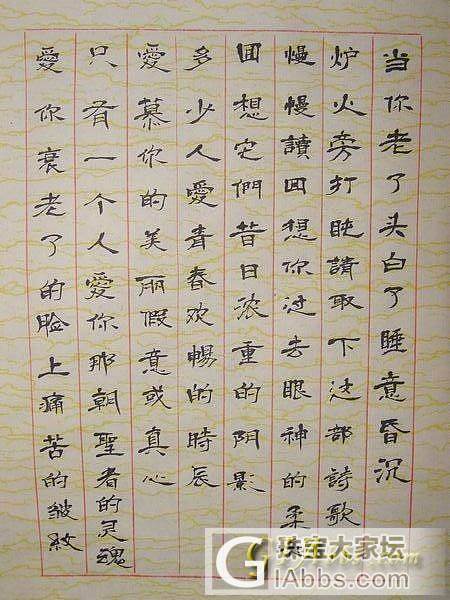 当你老了头白了睡意昏沉
炉火旁打盹請取下这部詩歌
慢慢讀回想你过去眼神的柔
回想它們昔日浓重的阴影
多少人愛青春欢暢的時辰
愛慕你的美丽假意或真心
只有一个人愛你那朝聖者的灵魂
愛你衰老了的脸上痛苦的皱紋
珠宝大家坛
GIAbbs.com